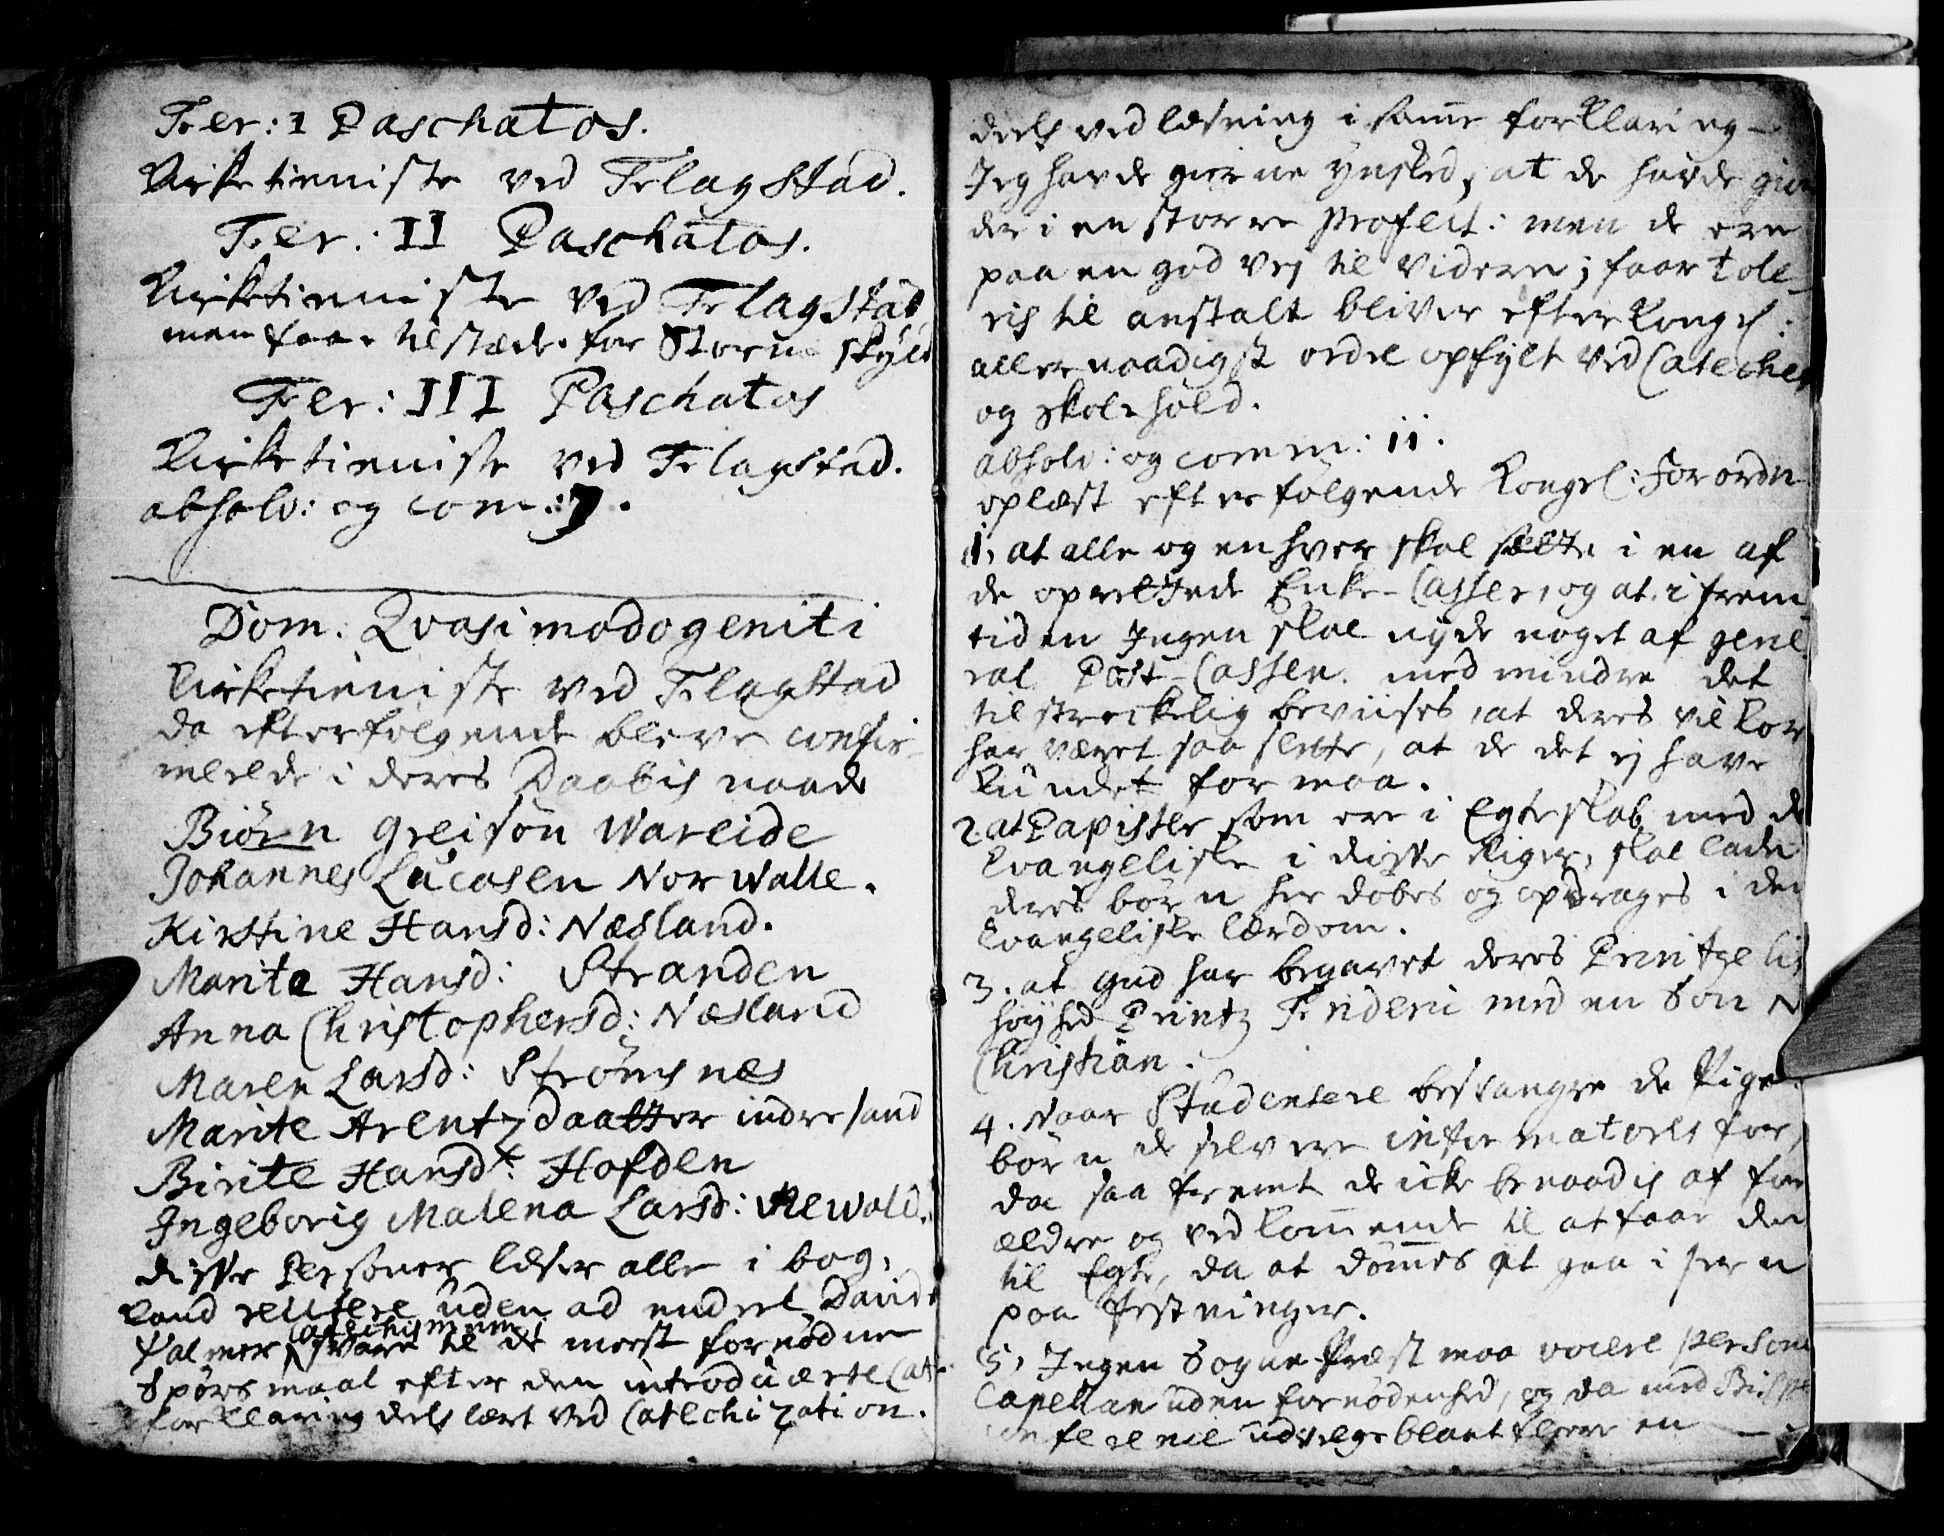 Fer: 1 Paschatos.
Kirketieniste ved Flagstad.
Fer: II Paschatos.
Kirketieniste ved Flagstad
men faa tilstæde for Storm skyld
Fer: III Paschatos
Kirketieniste ved Flagstad.
absolv: og com: 7.
Dom. Qvasimodogeniti
Kirketieniste ved Flagstad
da efterfølgende bleve confir-
merede i deres Daabis naade
Biørn Greisön Wareide
Johannes Lucasen Norwalle.
Kirstine Hansd: Næsland.
Marite Hansd: Stranden
Anna Christophersd: Næsland
Maren Larsd: Strömsnæs
Marite Arentzdaatter indresand
Birite Hansdt: Hofden
Ingeborig Malena Larsd: Rewold.
disse Personer læser alle i bog,
kand recitere uden ad endeel Davids
Psalmer, Catechismum svare til de meest fornødne
Spørsmaal efter den introducerte Cat
forklaring deels lært ved Catechization.
deels ved læsning i samme forklaring -
Jeg havde gierne ynsked, at de havde giort
der i en storre Profect: men de ere
paa en god vej til videre; faar tole-
ris til anstalt bliver efter Kongel:
allernaadigst ordre opfylt ved Cateches
og skolehold.
absolv: og comm: 11.
oplæst efterfølgende Kongel: Forordn
1, at alle og enhver skal sætte i en af
de oprettede Enke-Casser, og at i frem
tiden Ingen skal nyde noget af gene
ral Post-Cassen. med mindre det
tilstreckelig beviises, at deres vilkor
har været saa slette, at de det ej have
kundet formaa.
2. at Papister som ere i Egteskab med de
Evangeliske i disse Riger, skal lade
deres børn her dobes og opdrages i den
Evangeliske lærdom.
3. at Gud har begavet deres Printzelig
høyhed Printz Frideric med en Søn N
Christian.
4. Naar Studentere besvangre de Pige
børn de selv ere informatores for,
da saa fremt de icke benaadis af for
ældre og vedkommende til at faae den
til Egte, da at dømmes at gaa i jern
paa festninger.
5, Ingen Sogne-Præst maa vocere person
Capellan uden fornødenhed, og da med Bispe
conference udvælge blant flere en -